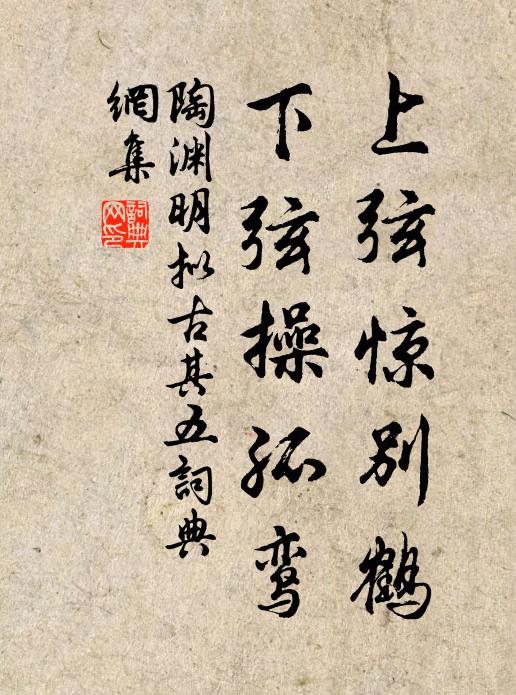 上弦惊别鹤
下弦操孤鸾
陶渊明拟古其五詞典
網集
詞典
网印